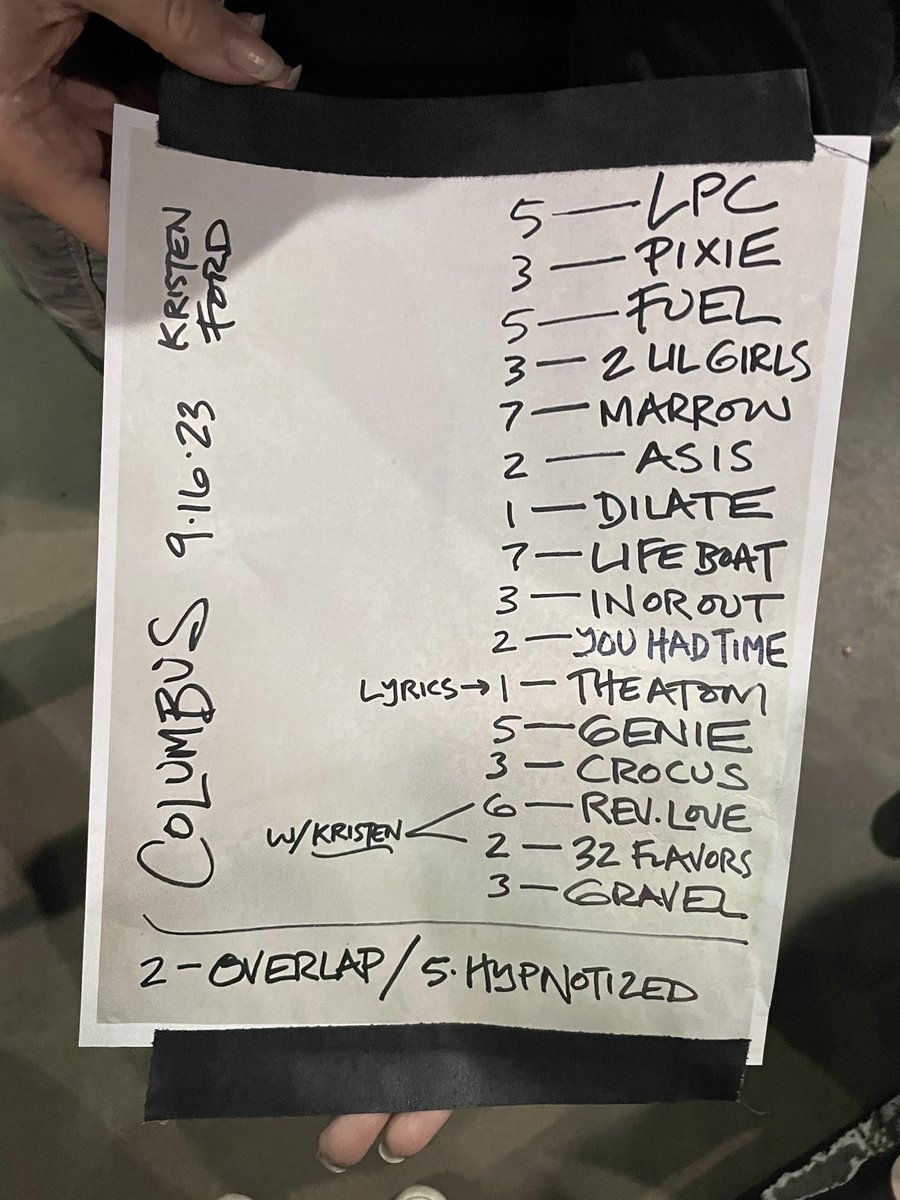 5 — LPC
3 — PIXIE
5 — FUEL
3 — 2 LIL GIRLS
7 — MARROW
2 — AS IS
1 — DILATE
7 — LIFE BOAT
3 — IN OR OUT
2 — YOU HAD TIME
LYRICS → 1 — THE ATOM
5 — GENIE
3 — CROCUS
6 — REV. LOVE
W/KRISTEN
2 — 32 FLAVORS
3 — GRAVEL
2 - OVERLAP / 5. HYPNOTIZED
COLUMBUS 9.16.23
KRISTEN
FORD